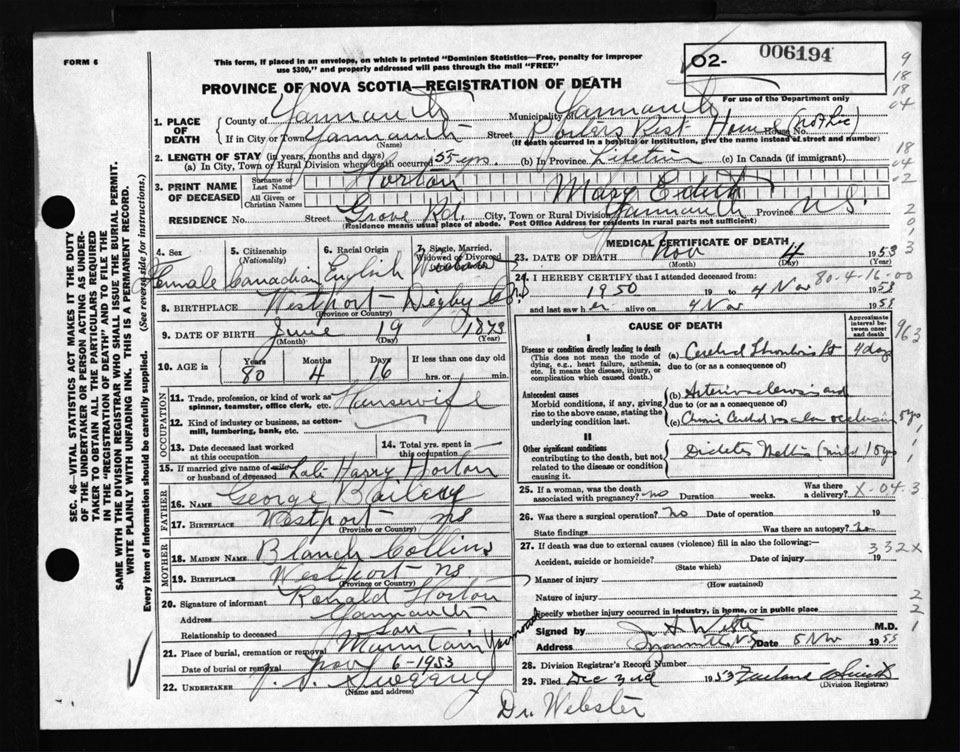 FORM 6
This form, if placed in an envelope, on which is printed "Dominion Statistics—Free, penalty for improper
use $300," and properly addressed will pass through the mail "FREE"
02- 006194
For use of the Department only
PROVINCE OF NOVA SCOTIA—REGISTRATION OF DEATH
9
18
18
04
1. PLACE OF DEATH
County of Yarmouth Municipality of Yarmouth
If in City or Town Yarmouth Street Rest Home House No. (not Lic)
(Name) (If death occurred in a hospital or institution, give the name instead of street and number)
2. LENGTH OF STAY (in years, months and days)
(a) In City, Town or Rural Division where death occurred 55 yrs. (b) In Province Lifetime (c) In Canada (if immigrant)
18
04
02
3. PRINT NAME OF DECEASED
Surname or Last Name Horton
All Given or Christian Names Mary Edith
RESIDENCE No. Street Grove Rd. City, Town or Rural Division Yarmouth Province N.S.
(Residence means usual place of abode. Post Office Address for residents in rural parts not sufficient)
4. Sex 5. Citizenship (Nationality) 6. Racial Origin 7. Single, Married, Widowed or Divorced
Female Canadian English Widow
8. BIRTHPLACE Westport Digby Co NS
(Province or Country)
9. DATE OF BIRTH June 19 1873
(Month) (Day) (Year)
10. AGE in Years Months Days If less than one day old
80 4 16 hrs. or min.
OCCUPATION
11. Trade, profession, or kind of work as
spinner, teamster, office clerk, etc. Housewife
12. Kind of industry or business, as cotton-
mill, lumbering, bank, etc.
13. Date deceased last worked at this occupation
14. Total yrs. spent in this occupation
15. If married give name of wife or husband of deceased Late Harry Horton
FATHER
16. NAME George Bailey
17. BIRTHPLACE Westport NS
(Province or Country)
MOTHER
18. MAIDEN NAME Blanch Collins
19. BIRTHPLACE Westport NS
(Province or Country)
20. Signature of informant Ronald Horton
Address Yarmouth
Relationship to deceased son
21. Place of burial, cremation or removal Mountain Yarmouth
Date of burial or removal Nov 6-1953
22. UNDERTAKER Sweeny
(Name and address)
MEDICAL CERTIFICATE OF DEATH
23. DATE OF DEATH Nov 4 1953
(Month) (Day) (Year)
80-4-16-00
24. I HEREBY CERTIFY that I attended deceased from:
1950 19 to 4 Nov 1953
and last saw her alive on 4 Nov 1953
CAUSE OF DEATH
Approximate interval between onset and death
963
I
Disease or condition directly leading to death
(This does not mean the mode of
dying, e.g., heart failure, asthenia,
etc. It means the disease, injury, or
complication which caused death.)
(a) Cerebral Thrombosis Rt 4 days
due to (or as a consequence of)
Antecedent causes
Morbid conditions, if any, giving
rise to the above cause, stating the
underlying condition last.
(b) Arteriosclerosis and
due to (or as a consequence of)
(c) Chronic Cerebral vascular occlusion 5 yrs
II
Other significant conditions
contributing to the death, but not
related to the disease or condition
causing it.
Diabetes Mellitus (mild) 5 yrs
25. If a woman, was the death associated with pregnancy? no Duration weeks. Was there a delivery? X-043
26. Was there a surgical operation? no Date of operation 19
State findings Was there an autopsy? no
27. If death was due to external causes (violence) fill in also the following: 332X
Accident, suicide or homicide? Date of injury 19
(State which)
Manner of injury
(How sustained)
Nature of injury
Specify whether injury occurred in industry, in home, or in public place
Signed by M.D.
Address Yarmouth, N.S. 5 Nov 1953
28. Division Registrar's Record Number
29. Filed Dec 2nd 1953
(Division Registrar)
Dr. Webster
SEC. 46—VITAL STATISTICS ACT MAKES IT THE DUTY
OF THE UNDERTAKER OR PERSON ACTING AS UNDER-
TAKER TO OBTAIN ALL THE PARTICULARS REQUIRED
IN THE "REGISTRATION OF DEATH" AND TO FILE THE
SAME WITH THE DIVISION REGISTRAR WHO SHALL ISSUE THE BURIAL PERMIT.
WRITE PLAINLY WITH UNFADING INK. THIS IS A PERMANENT RECORD.
Every item of information should be carefully supplied. (See reverse side for instructions.)